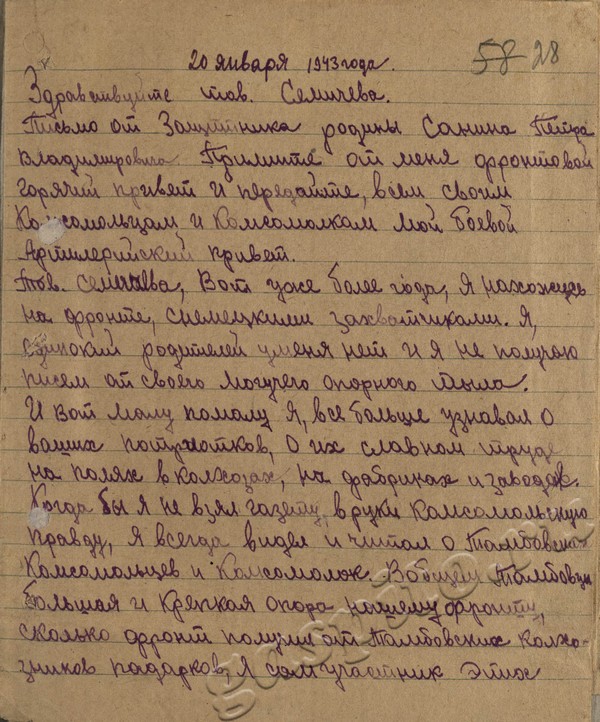 58 28
20 января 1943 года.
Здравствуйте тов. Семичева.
Письмо от Защитника родины Санина Петра
Владимировича Примите от меня фронтовой
горячий привет и передайте, всем своим
Комсомольцам и Комсомолкам мой боевой
Артилерийский привет.
Тов. Семичева, Вот уже более года, я нахожусь
на фронте, снемецкими захватчиками. Я,
одинокий родителей уменя нет и я не получаю
писем от своего могучего опорного тыла.
И вот малу помалу я, все больше узнавал о
ваших патриотков, о их славном труде
на полях в колхозах, на фабриках и заводах.
Когда бы я не взял газету, в руки Комсомольскую
правду, я всегда видел и читал о Тамбовских
Комсомольцев и Комсомолок. Вобщем Тамбовцы
большая и крепкая опора нашему фронту,
сколько фронт получил от Тамбовских колхо-
зников падарков, я сам участник этих